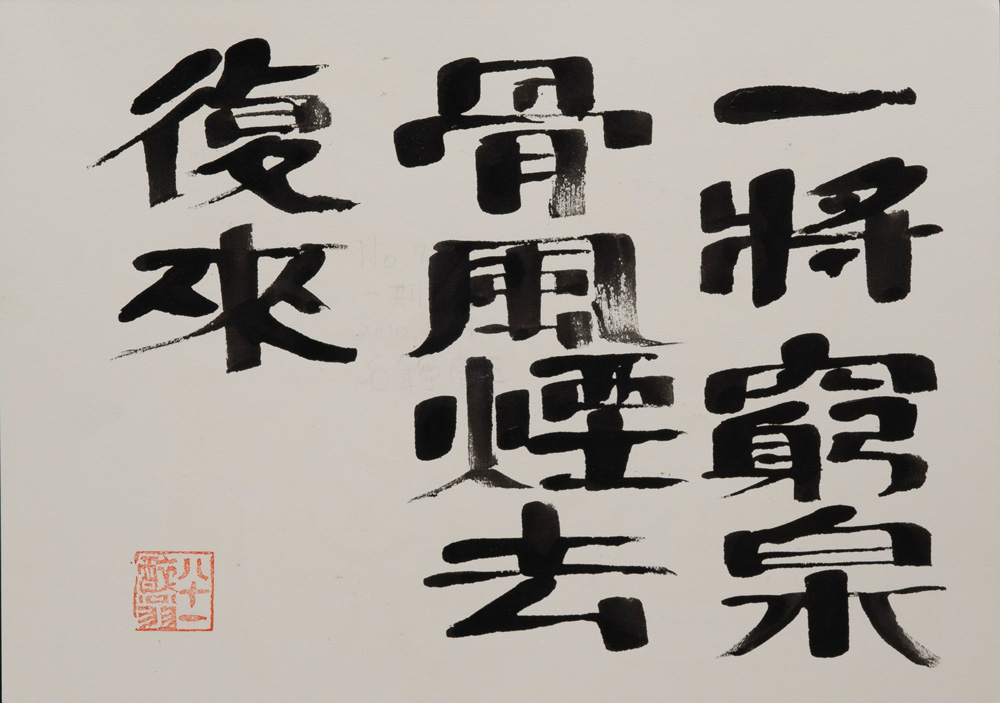 一將窮泉
骨風煙去
復來
八十一